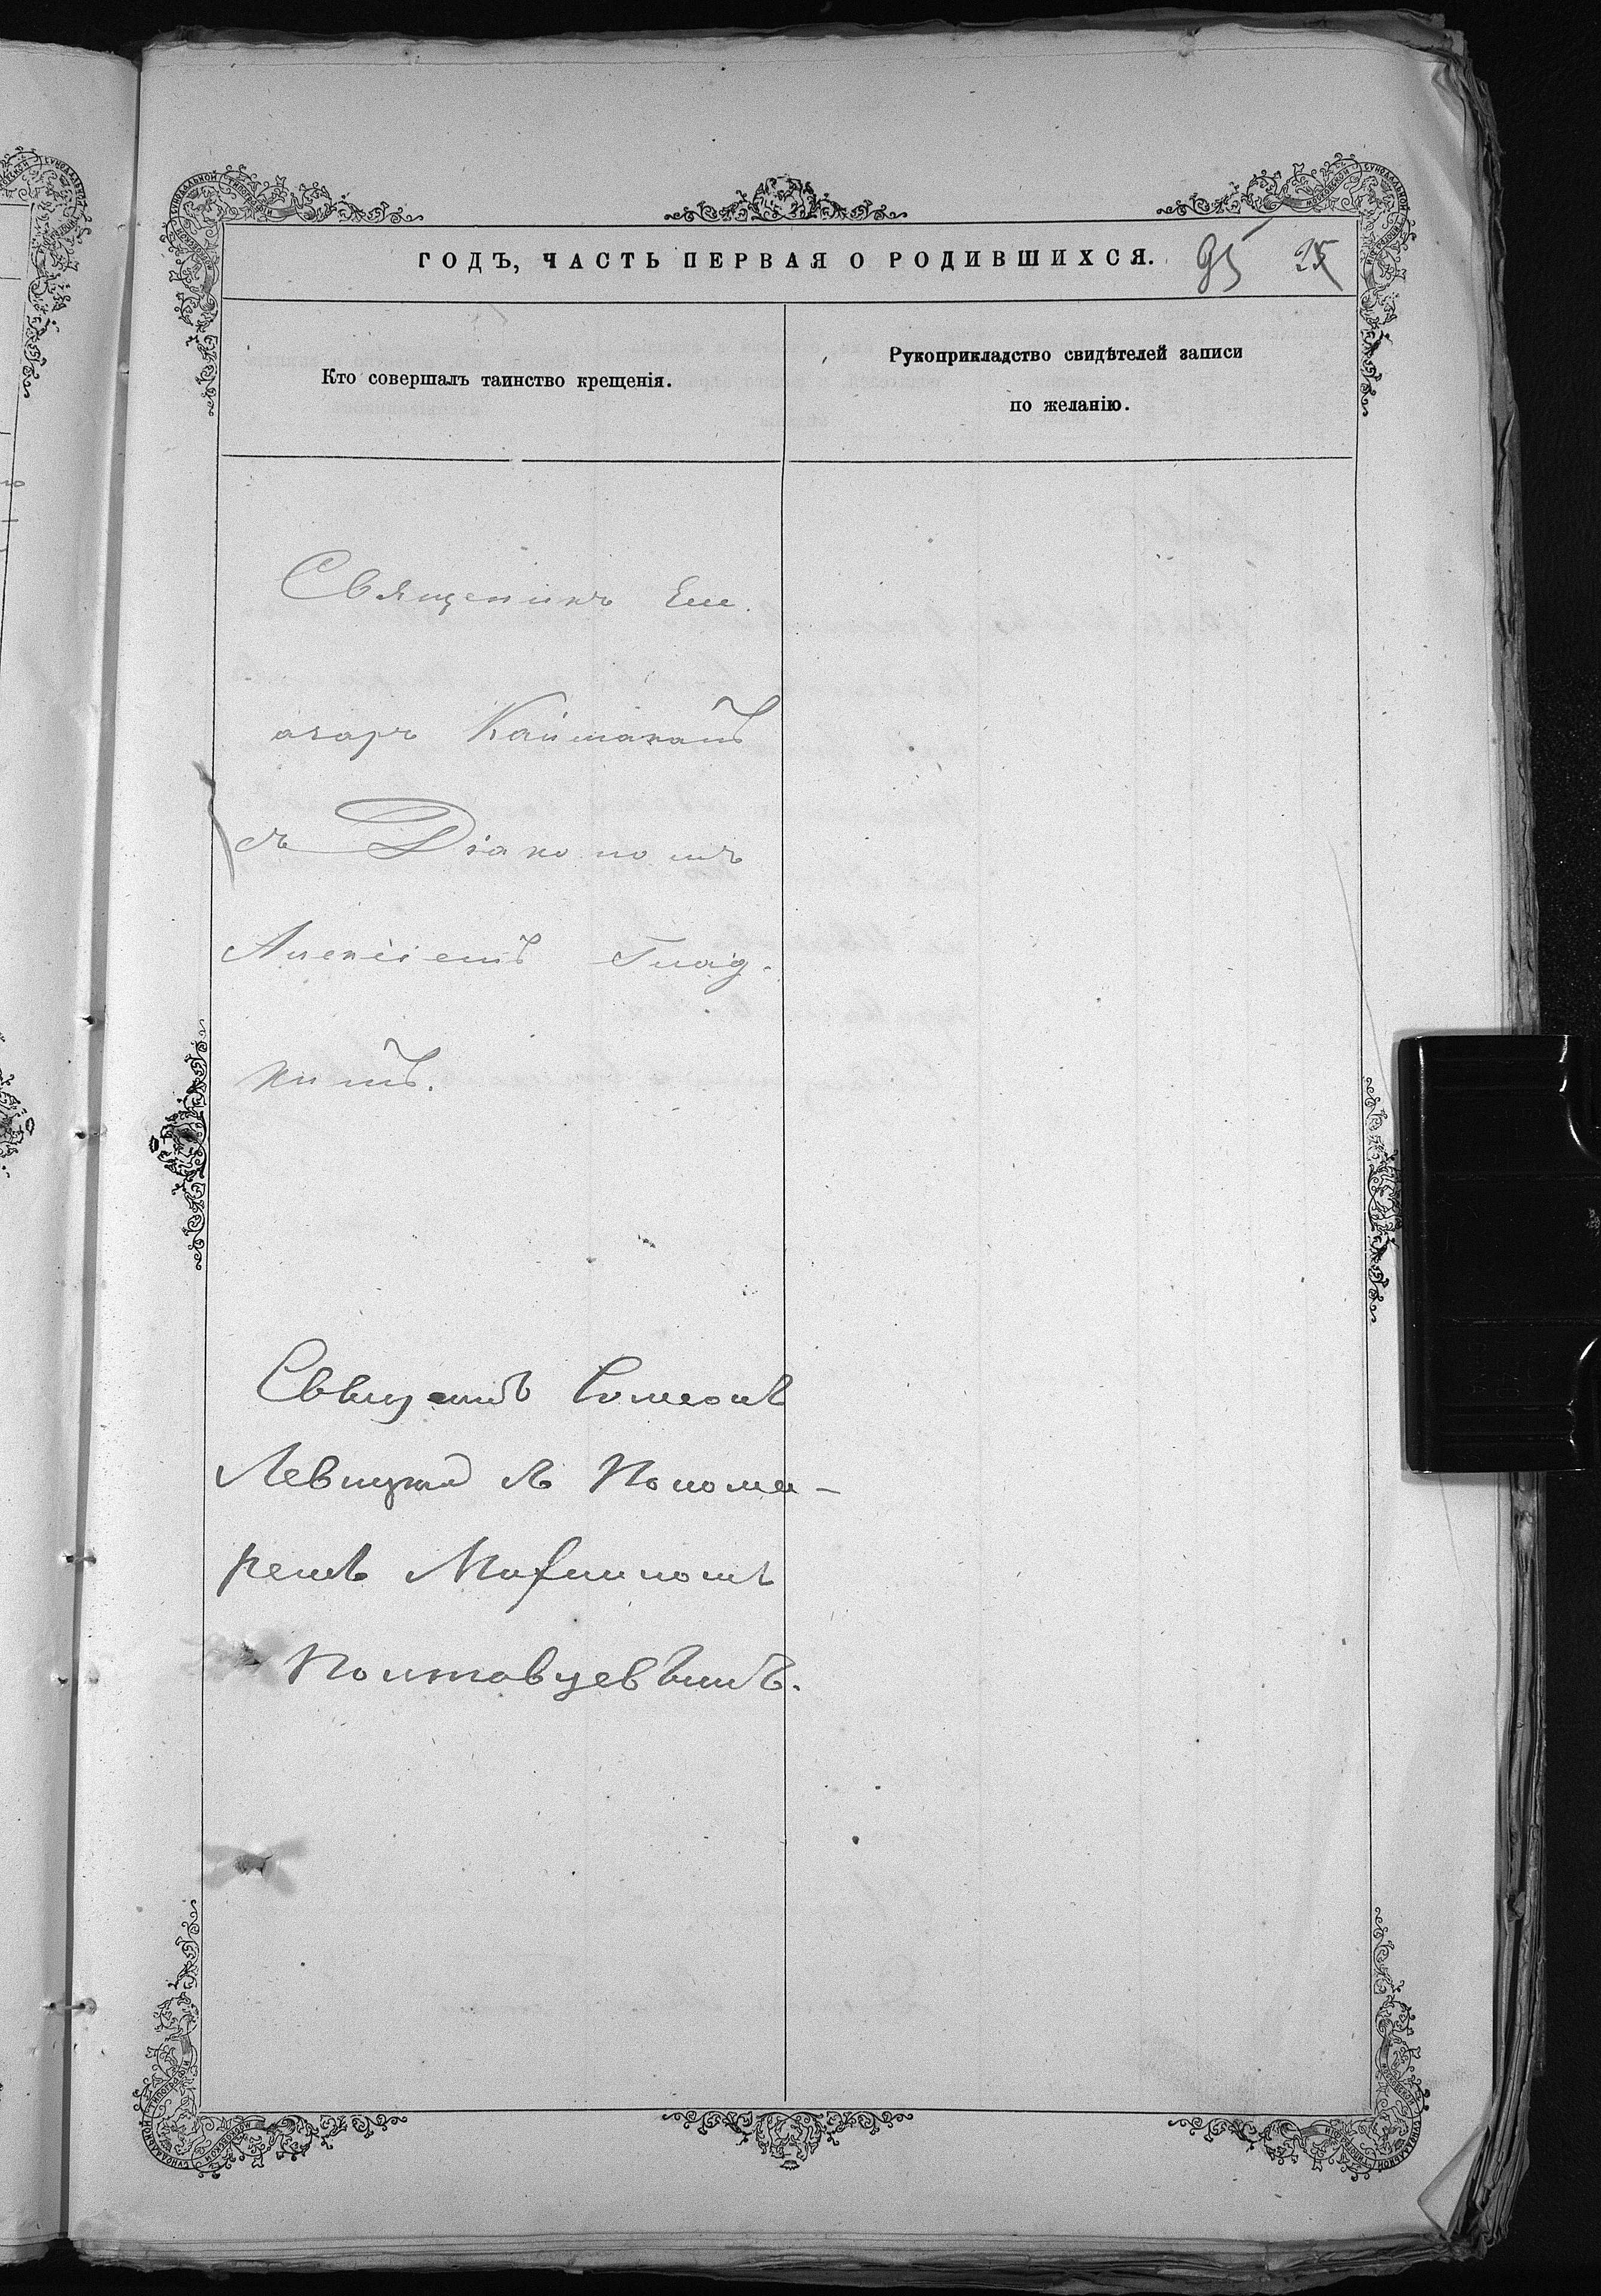 ГОДЪ, ЧАСТЬ ПЕРВАЯ О РОДИВШИХСЯ. 95 25
Кто совершалъ таинство крещенія.
Рукоприкладство свидѣтелей записи
по желанію.
Священикъ Еле.
азаръ Каймаканъ
съ Діакономъ
Алексіемъ Глад.
кимъ.
Симеонъ
Левицкій съ Понома-
ремъ
Полтавцевымъ.